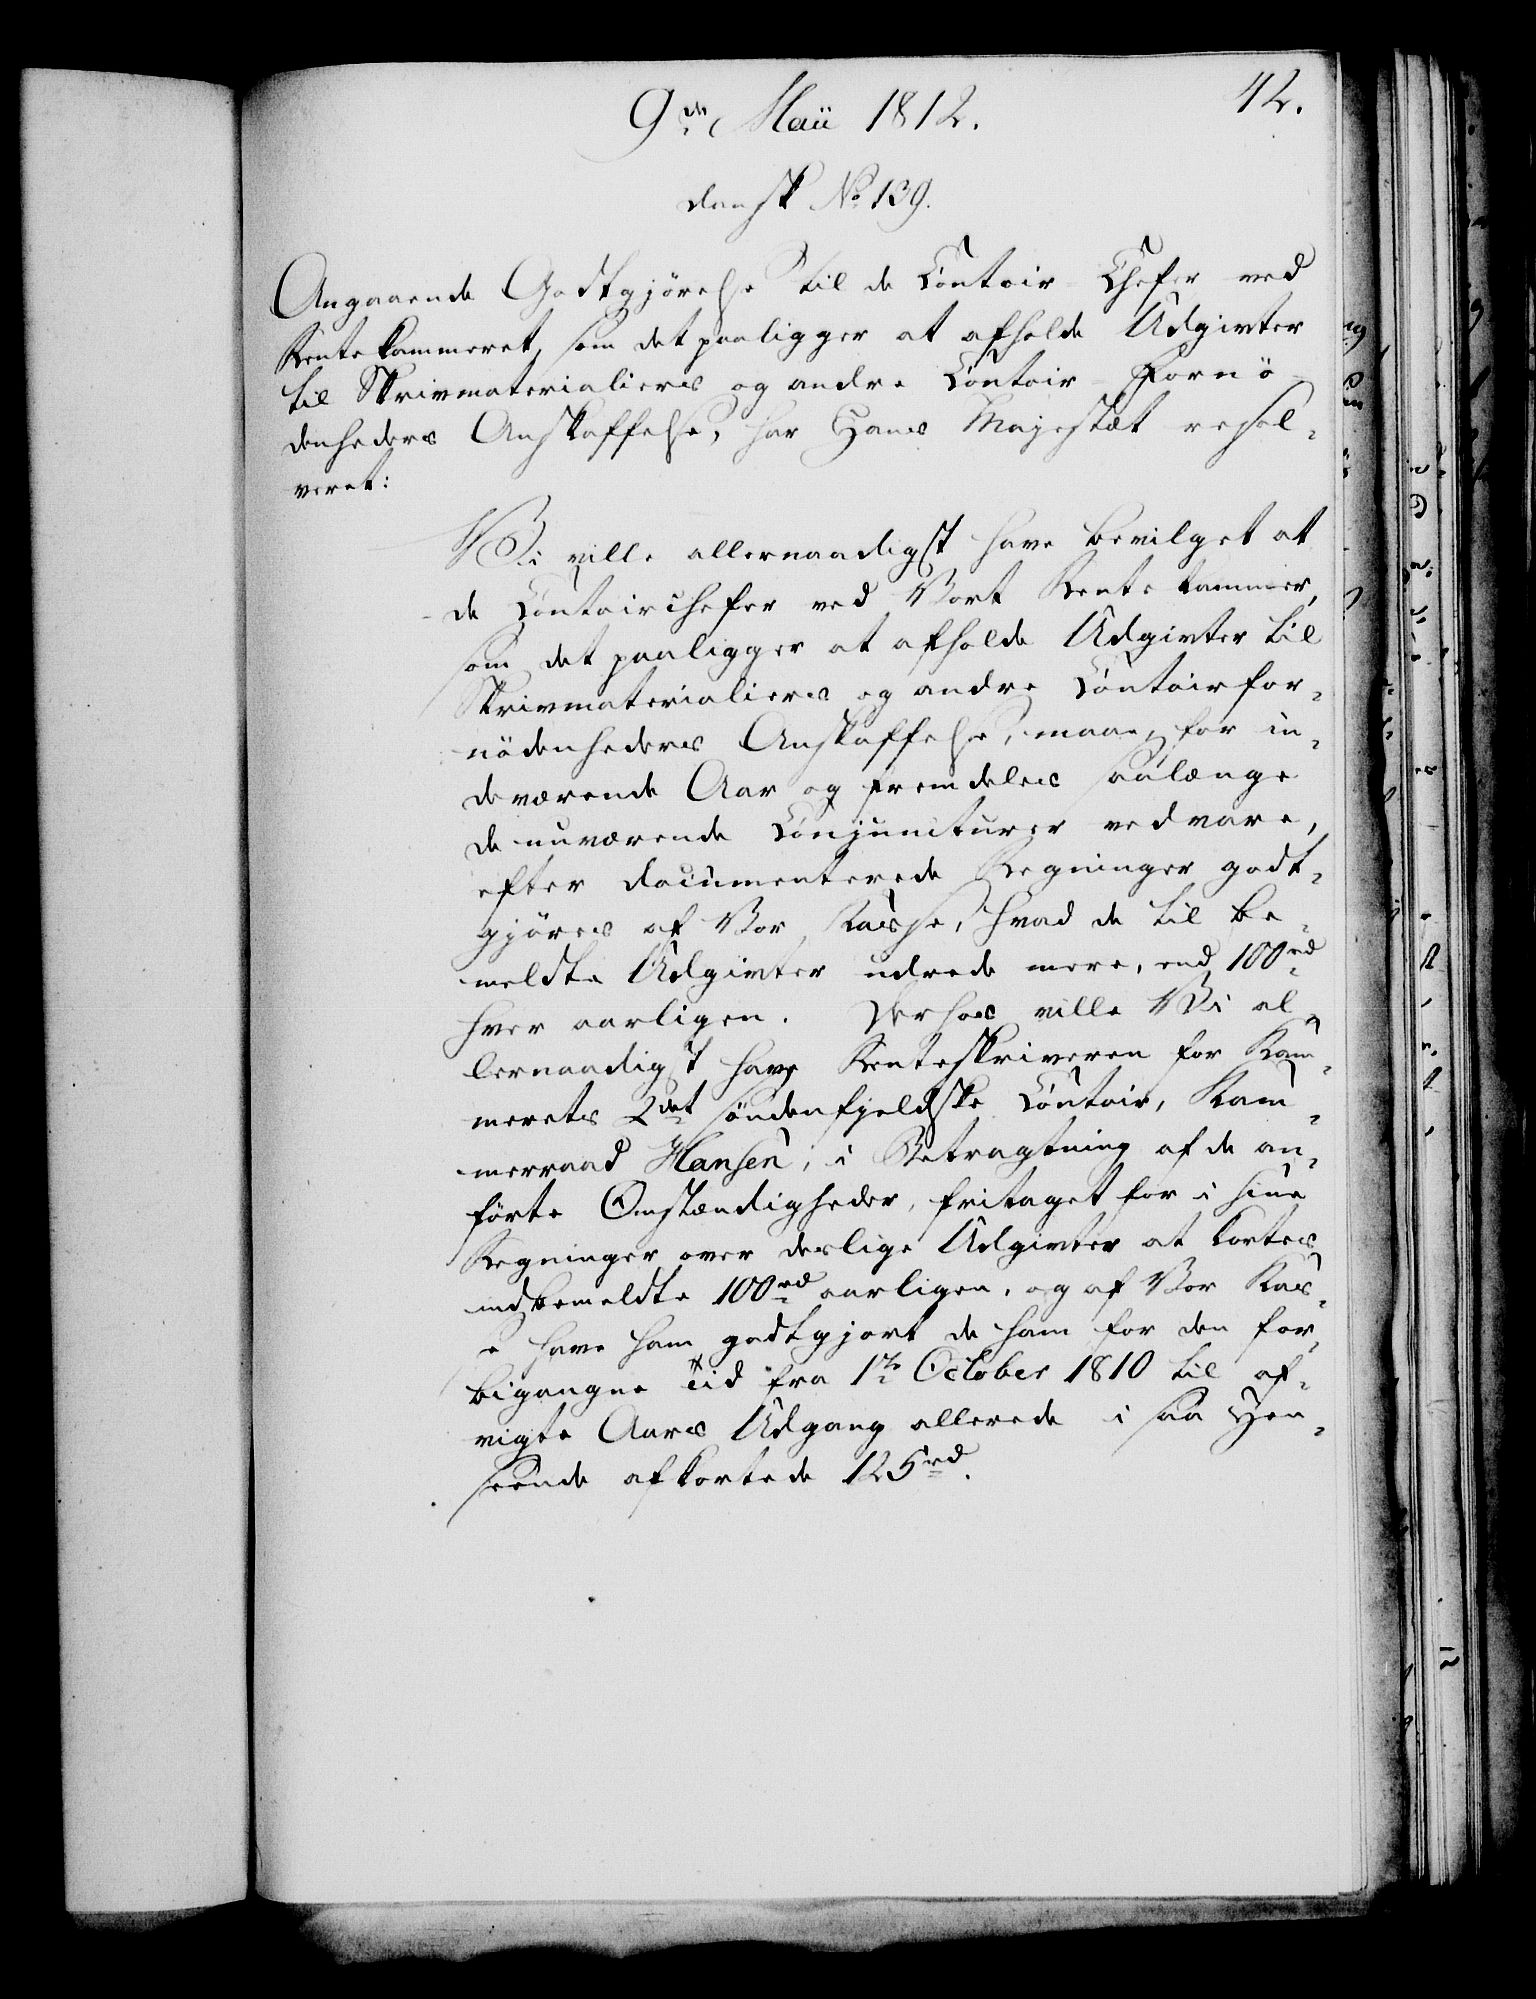 42.
9de Maii 1812.
dansk No 139.
Angaaende Godtgjörelse til de Contoir-Chefer ved
Rentekammeret, som det paaligger at afholde Udgivter
til Skrivmaterialiers og andre Contoir-Fornö-
denheders Anskaffelse, har Hans Majestæt resol-
veret:
Vi ville allernaadigst have bevilget at
de Contoirchefer ved Vort Rentekammer,
som det paaligger at afholde Udgivter til
Skrivmaterialiers og andre Contoirfor-
nödenheders Anskaffelse, maae, for in-
deværende Aar og fremdeles saalænge
de nuværende Conjuncturer vedvare,
efter documenterede Regninger godt-
gjöres af Vor Kasse, hvad de til be-
meldte Udgivter udrede mere, end 100rd
hver aarligen. Derhos ville Vi al-
lernaadigst have Renteskriveren for Kam-
merets 2det söndenfjeldske Contoir, Kam-
merraad Hansen, i Betragtning af de an-
förte Omstændigheder, fritaget for i sine
Regninger over deslige Udgivter at kortes
indbemeldte 100rd aarligen, og af Vor Kas-
se have ham godtgjort de ham for den for-
bigangne Tid fra 1te October 1810 til af-
vigte Aars Udgang allerede i saa Hen-
seende afkortede 125rd.